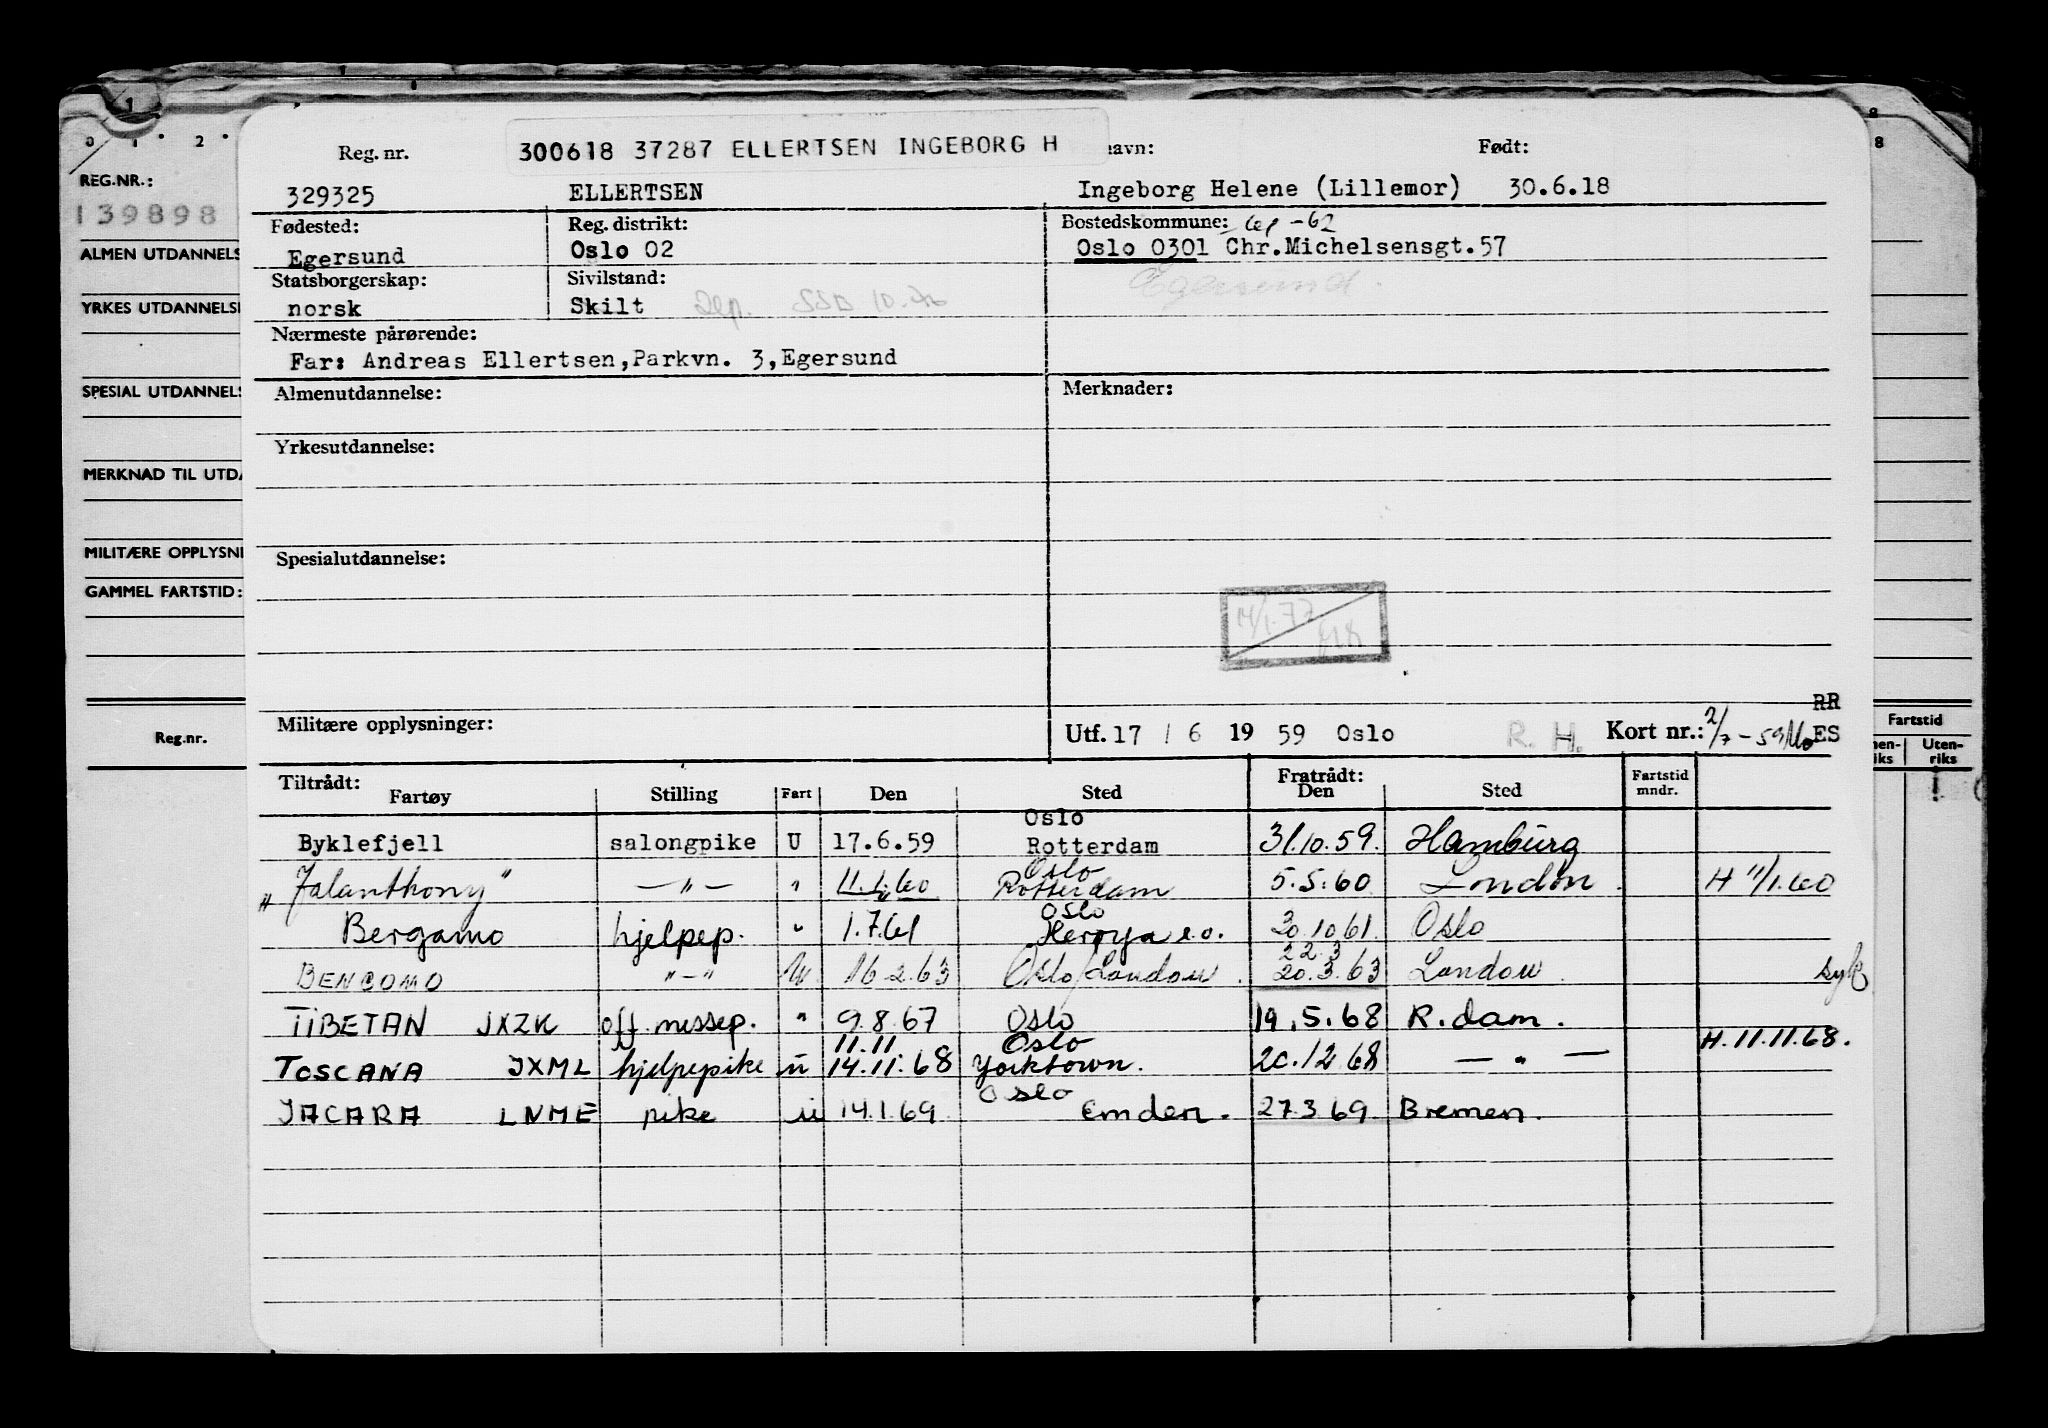 300618 37287 ELLERTSEN INGEBORG H
Reg. nr. navn: Født:
329325 ELLERTSEN Ingeborg Helene (Lillemor) 30.6.18
Fødested: Reg. distrikt: Bostedskommune: -62
Egersund Oslo 02 Oslo 0301 Chr.Michelsensgt.57
Statsborgerskap: Sivilstand: Egersund.
norsk Skilt Dep. SSB 10.76
Nærmeste pårørende:
Far: Andreas Ellertsen,Parkvn. 3,Egersund
Almenutdannelse: Merknader:
Yrkesutdannelse:
Spesialutdannelse:
14/1.77
RR
Militære opplysninger: Utf. 17 / 6 19 59 Oslo R. H. Kort nr.: 2/7-59 ES
Tiltrådt: Fratrådt:
Fartøy Stilling Fart Den Sted Den Sted Fartstid mndr.
Oslo
Byklefjell salongpike U 17.6.59 Rotterdam 31.10.59. Hamburg
Oslo
"Jalanthony" — " — " 11.1.60 Rotterdam 5.5.60 London. H 11/1.60
Oslo
Bergamo hjelpep. " 1.7.61 Herøya e.o. 30.10.61. Oslo
22.3
BENCOMO " - " U 16.2.63 Oslo/London. 20.3.63 London. syk
TIBETAN JXZK off. messep. " 9.8.67 Oslo 19.5.68 R.dam.
11.11 Oslo H. 11.11.68.
TOSCANA JXML hjelpepike u 14.11.68 Yorktown. 20.12.68 — " —
Oslo
JACARA LNME pike u 14.1.69. Emden. 27.3.69 Bremen.
1
0 1 2
8
8
REG.NR.:
139898
ALMEN UTDANNELS
YRKES UTDANNELS
SPESIAL UTDANNELS
MERKNAD TIL UTDA
MILITÆRE OPPLYSNI
GAMMEL FARTSTID:
Reg.nr.
Fartstid
nen-
iks
Uten-
riks